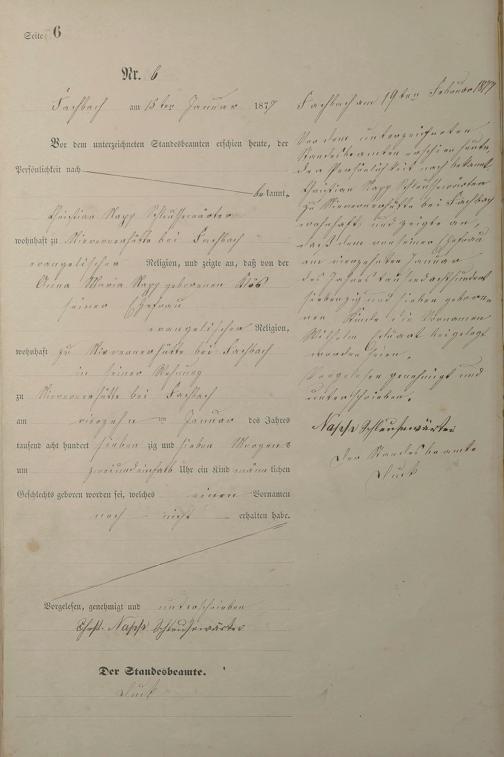 Seite 6
Nr. 6
Fachbach am 15ten Januar 1877
Vor dem unterzeichneten Standesbeamten erschien heute, der
Persönlichkeit nach
bekannt,
Christian Napp Schleusenwärter
wohnhaft zu Nieverner hütte bei Fachbach
evangelischer Religion, und zeigte an, daß von der
Anna Maria Napp geborenen
seiner Ehefrau
evangelischer Religion,
wohnhaft zu Nievernerhütte bei Fachbach
in seiner Wohnung
zu Nievernerhütte bei Fachbach
am vierzehn ten Januar des Jahres
tausend acht hundert sieben zig und sieben Morgens
um Uhr ein Kind männlichen
Geschlechts geboren worden sei, welches einen Vornamen
noch nicht erhalten habe.
Vorgelesen, genehmigt und unterschrieben
Chrst. Napp Schleusewärter
Der Standesbeamte.
Fachbach am 19ten Februar 1877
Vor dem unterzeichneten
Standesbeamten erschien heute,
der Persönlichkeit nach bekannt
Christian Napp Schleusenwärter
zu Nievernerhütte bei Fachbach
wohnhaft und zeigte an,
daß dem von seiner Ehefrau
am vierzehnten Januar
des Jahres tausendachthundert
siebenzig und sieben gebore-
nen Kinde die Vornamen
Wilhelm Eduart beigelegt
worden seien.
Vorgelesen genehmigt und
unterschrieben.
Napp Schleusewärter
Der Standesbeamte